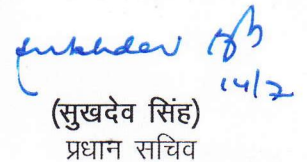 sukhdev
14/2
(सुखदेव सिंह)
प्रधान सचिव